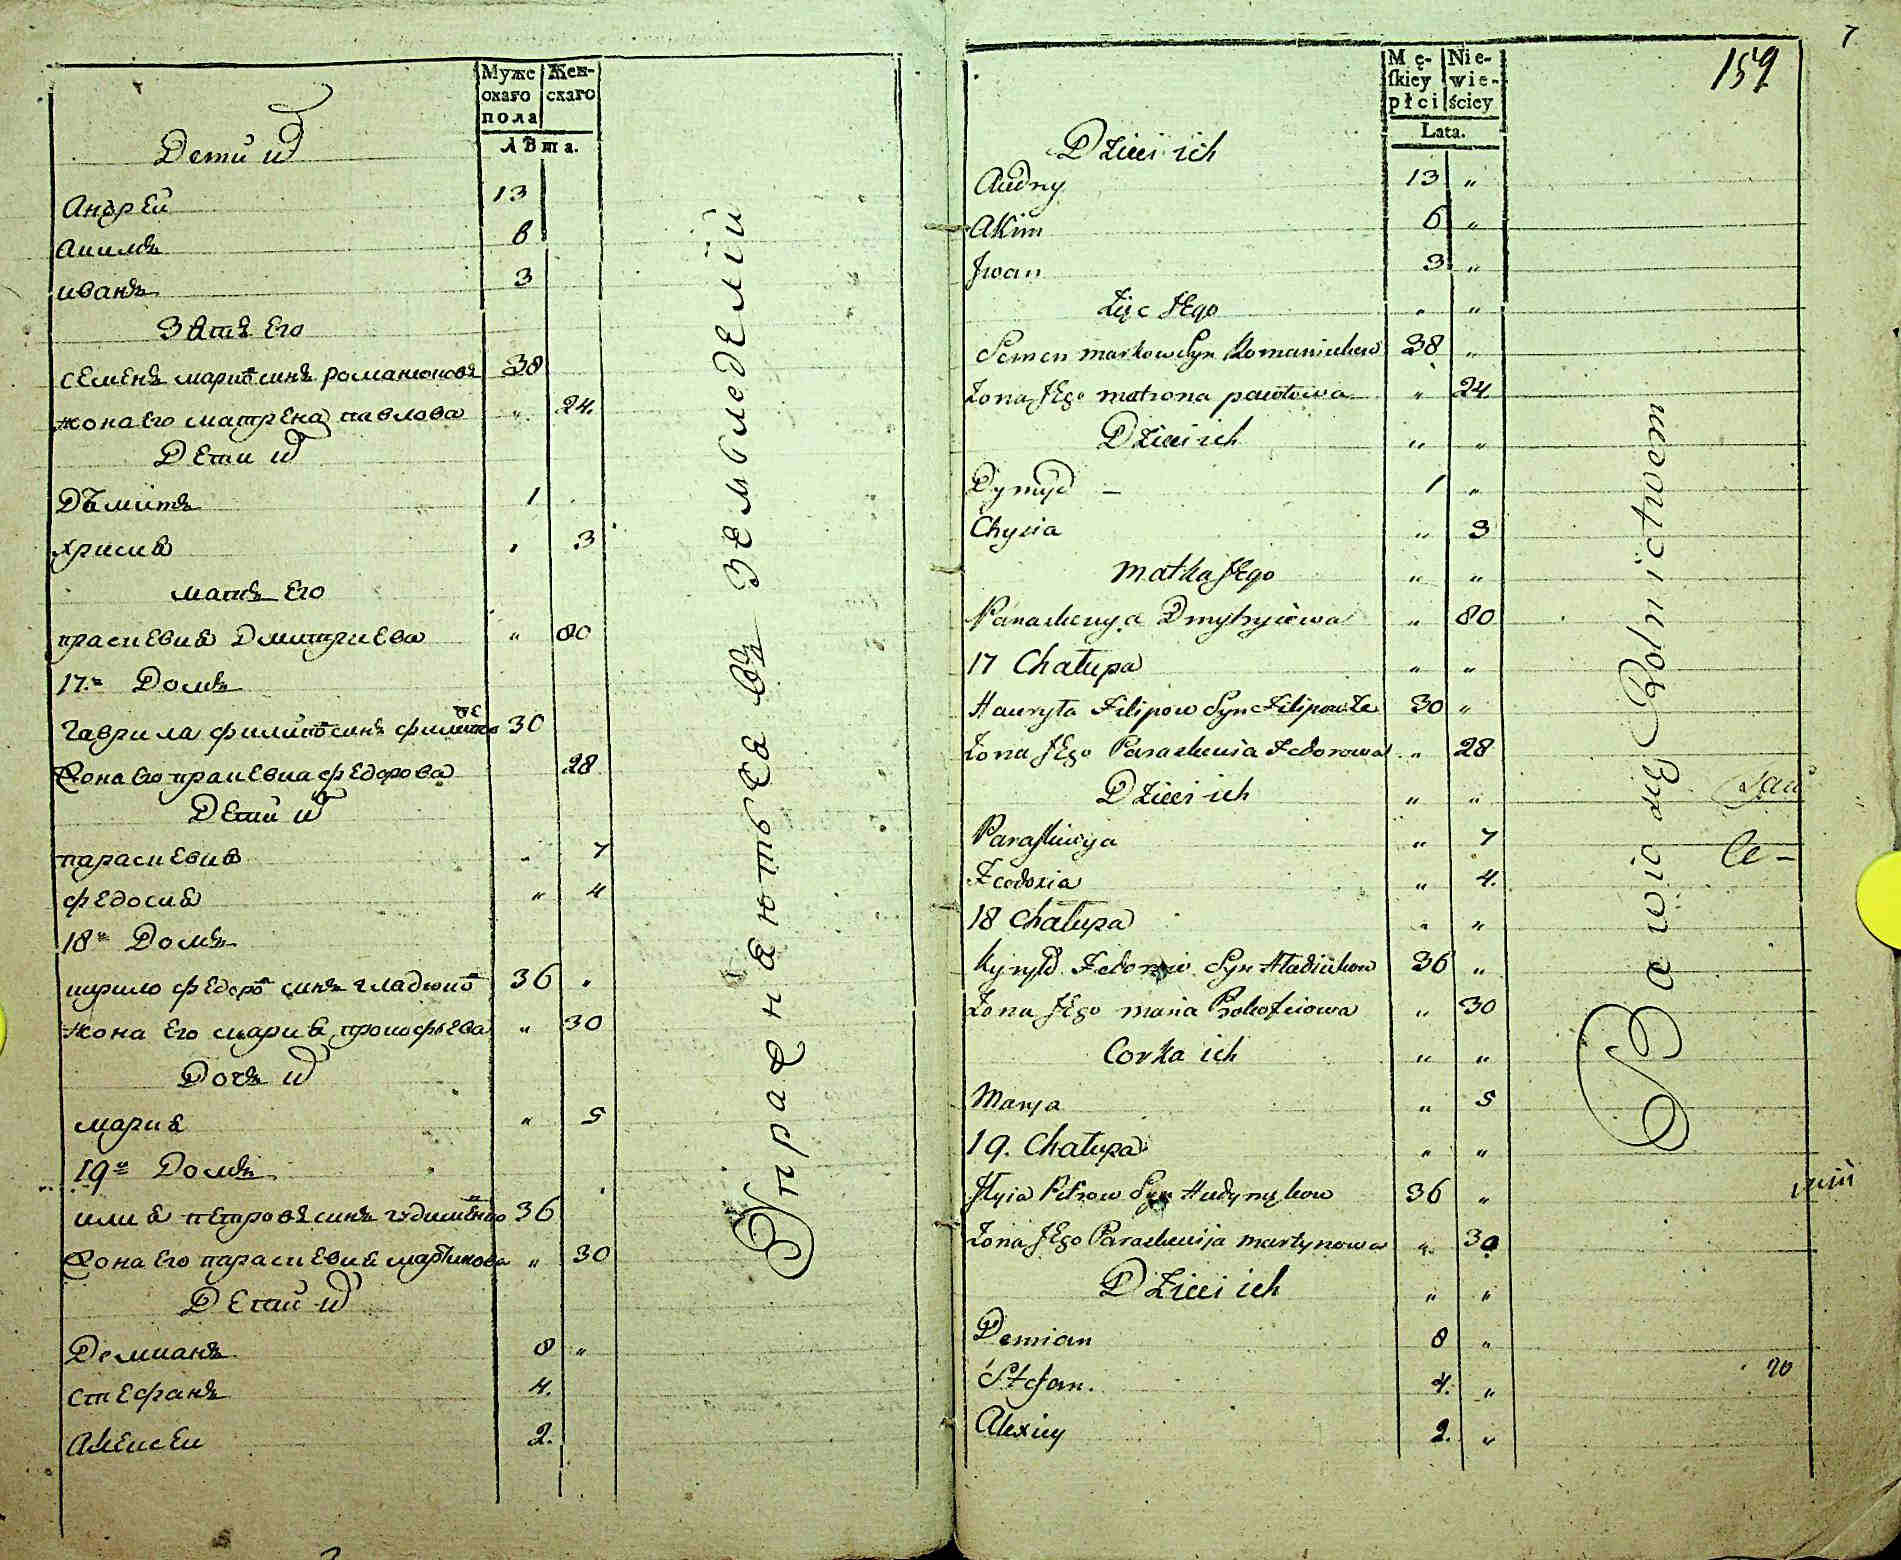 Муже
скаго
пола
Жен-
скаго
Лѣта.
Дети их
Андрей 13
Акимъ 6
иванъ 3
Зять Его
семенъ марковъ синъ романюковъ 38
жона Его матрена павлова " 24.
Дети их
Дѣмитъ 1
хрисия " 3
мать Его
параскевия Дмитриева " 80
17.ъ Домъ
гаврила филиповъ синъ филипов 30
Жона Его параскевиа федорова 28
Дети их
параскевия " 7
федосия " 4
18ъ Домъ
кирило федоровъ синъ гладюковъ 36 "
жона Его мария прокофьева " 30
Дочь их
мария " 5
19ъ Домъ
илия петровъ синъ 36
Жона Его параскевия мартинова " 30
Дети их
Демианъ 8 "
стефанъ 4.
Алексеи 2.
Упражняются въ земледелій
7
159
Mę-
skiey
płci
Nie-
wie-
ściey
Lata.
Dzieci ich
Andry 13 "
Akim 6 "
Jwan 3 "
Zięć Jego " "
Semen markow Syn Romaniukow 38 "
Zona Jego matrona pawłowa " 24
Dzieci ich " "
Dymyd – 1 "
Chysia " 3
matka Jego " "
Paraskewya Dmytryiewa " 80
17 Chałupa " "
Hauryła Filipow Syn 30 "
Zona Jego Paraskewia Fedorowa " 28
Dzieci ich " "
Paraskiewya " 7
Feodozia " 4.
18 Chałupa " "
Kyryło Fedorow Syn Hladiukow 36 "
Zona Jego maria Prokofiowa " 30
Corka ich " "
Marya " 5
19. Chałupa " "
Jłyia Petrow Syn 36 "
Zona Jego Paraskewija martynowa " 30
Dzieci ich " "
Demian 8 "
Stefan. 4. "
Alexiey 2. "
Bawią się Rolnictwem